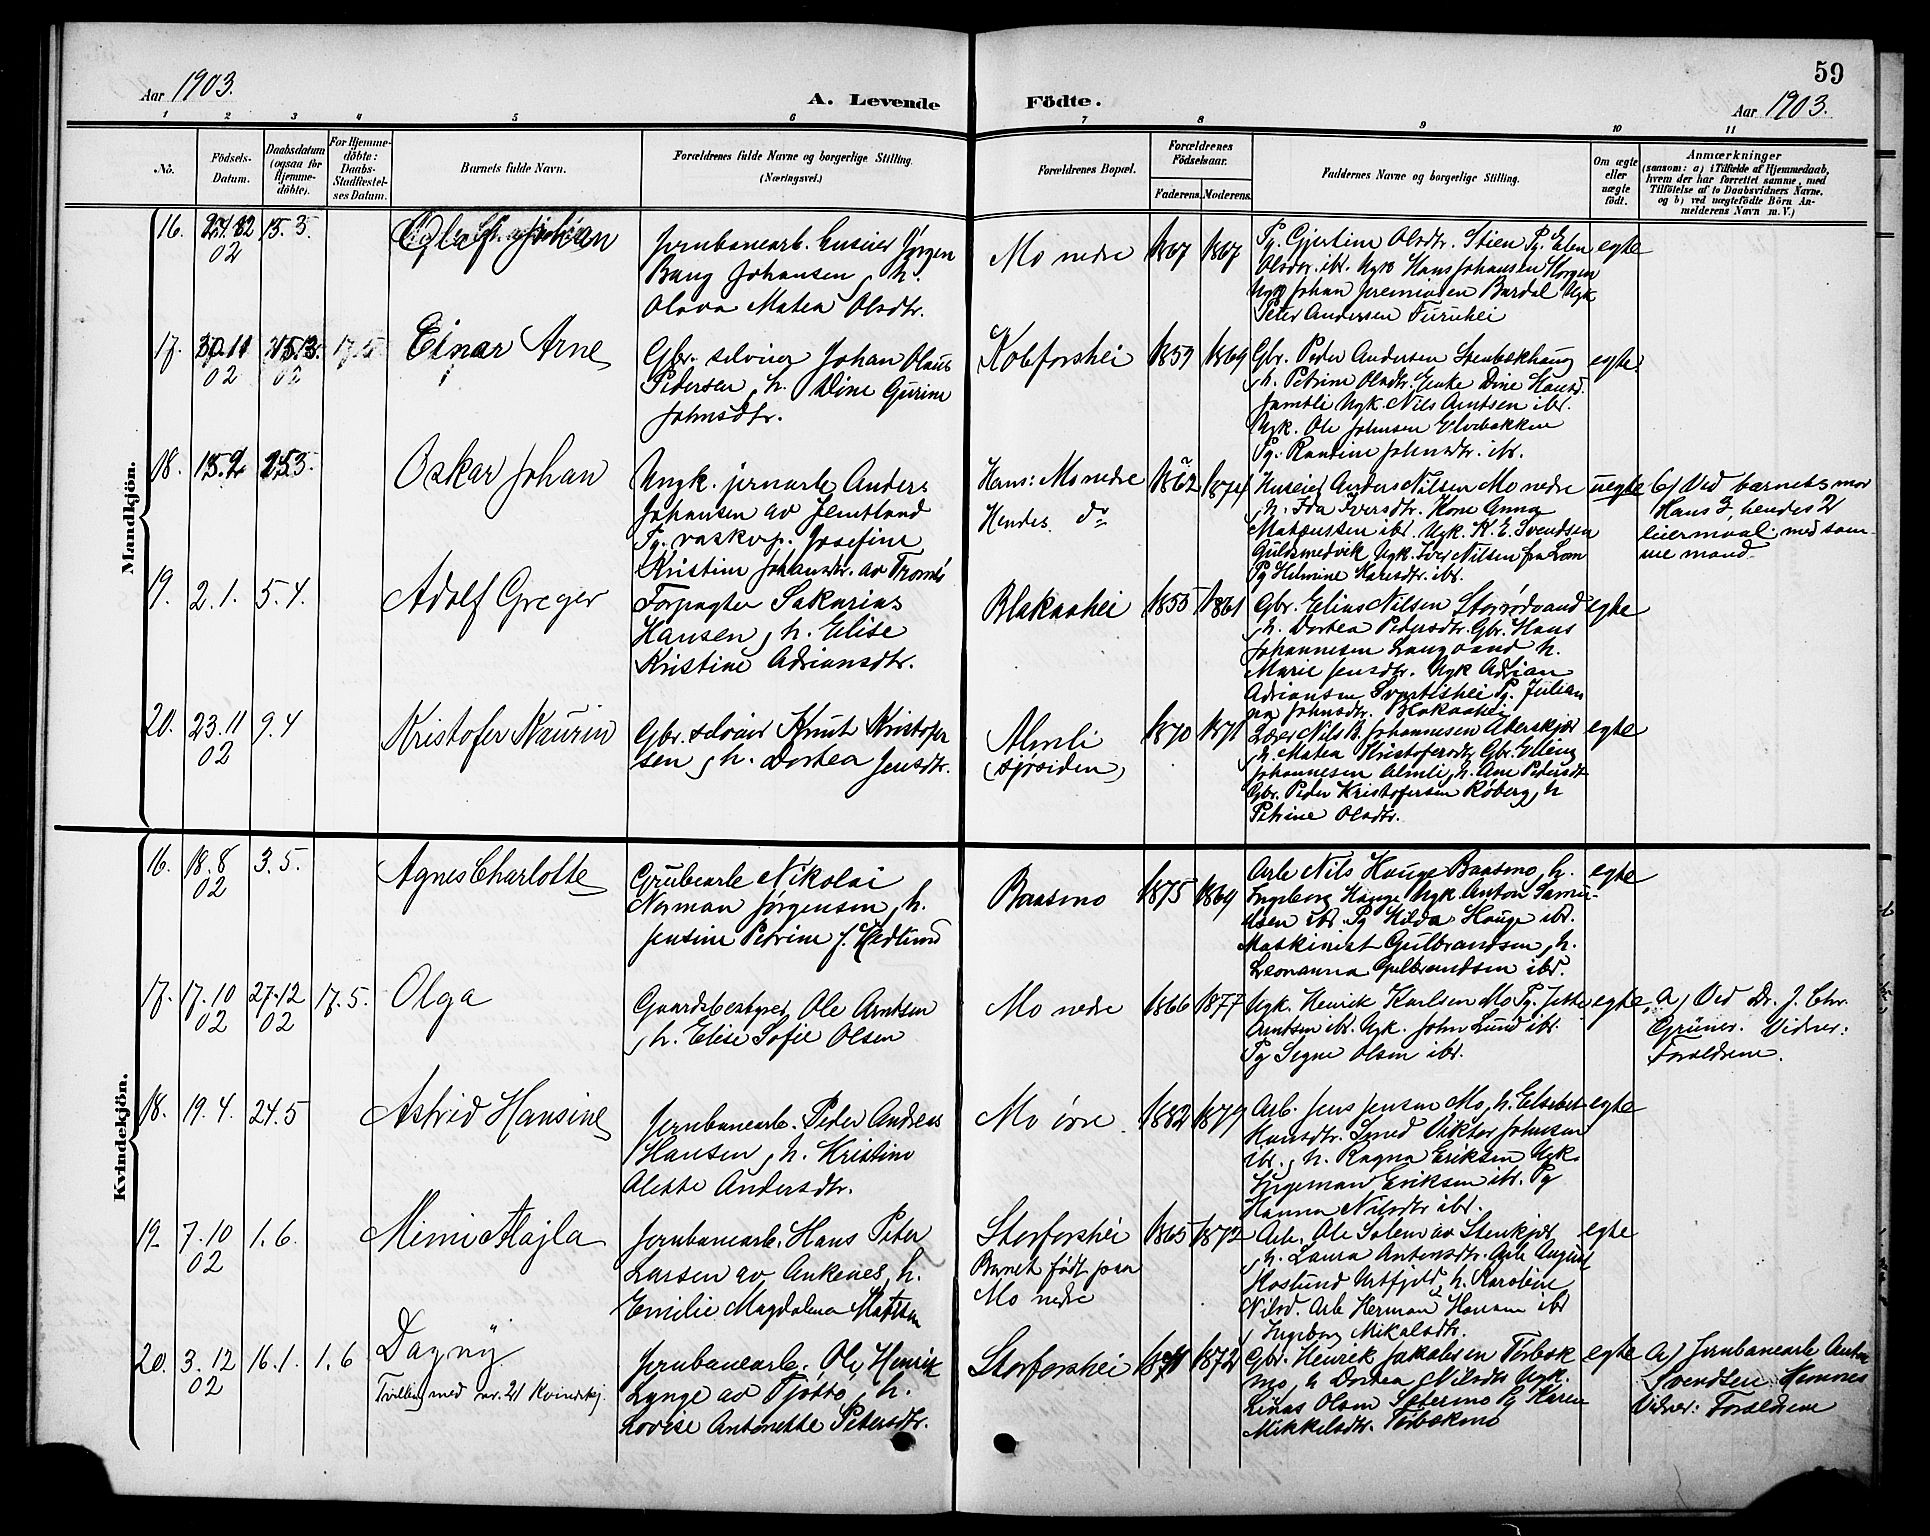 59
Aar 1903.
A. Levende Födte.
Aar 1903.
1 2 3 4 5 6 7 8 9 10 11
No.
Födsels-Datum.
Daabsdatum (ogsaa for Hjemme-döbte).
For Hjemme-döbte: Daabs-Stadfæstel-ses Datum.
Barnets fulde Navn.
Forældrenes fulde Navne og borgerlige Stilling.
(Næringsvei.)
Forældrenes Bopæl.
Forældrenes Födselsaar.
Faderens. Moderens.
Faddernes Navne og borgerlige Stilling.
Om ægte eller uægte födt.
Anmærkninger
(saasom: a) i Tilfælde af Hjemmedaab,
hvem der har forrettet samme, med
Tilföielse af to Daabsvidners Navne,
og b) ved uægtefödte Börn An-
melderens Navn m. V.)
Mandkjön.
16. 02 15.3. Olaf Johan
Jernbanearb. Huseier Jørgen
Bang Johansen, h.
Olava Matea Olsdtr.
Mo nedre 1867 1867
Pg. Gjertine Olsdtr. Stien Pg. Elen
Olsdtr. ibr. Ugk Hans Johansen Horgen
Ugk Johan Jeremiasen Bardal Ugk
Peter Andersen Furuhei
egte
17. 30.11 02 17.5 Einar Arne
Gbr. selveier Johan Olaus
Pedersen, h. Dine Gurine
Johnsdtr.
Kobforshei 1859 1869
Gbr. Peder Andersen Stenbekhaug
, h. Petrine Olsdtr. Enke Dine Hansd.
Jamtli Ugk. Nils Arntsen ibr.
Ugk. Ole Johnsen Elvebakken
Pg. Rantine Johnsdtr. ibr.
egte
18. 15.2 Oskar Johan
Ungk. jernarb Anders
Johansen av Jemtland
Pg. vaskep. Josefine
Kristine Johansdtr. av Tromsö
Hans: Mo nedre
Hendes do
1862 1874
Huseier Anders Nilsen Mo nedre
, h. Ida Iversdtr. Kone Anna
Matheussen ibr. Ugk. K. E. Svendsen
Guldsmedvik Ugk. Iver Nilsen fra Lom
Pg Helmine Haresdtr. ibr.
uegte
b) Ved barnets mor
Hans 3, hendes 2
leiermaal med sam-
me mand.
19. 2.1. 5.4. Adolf Greger
Forpagter Sakarias
Hansen, h. Elise
Kristine Adriansdtr.
Blakaahei 1855 1861
Gbr. Elias Nilsen Storrödvand
, h. Dortea Pedersdtr. Gbr. Hans
Johannesen Langvand h.
Marie Jensdtr. Ugk Adrian
Adriansen Svartishei Pg. Julian
na Johnsdtr. Blakaahei
egte
20. 23.11 02 9.4 Kristofer Naurin
Gbr. selveier Knut Kristofer
sen, h. Dortea Jensdtr.
Almli
(sjøsiden)
1870 1871
Lærer Nils B. Johannesen Alterskjær
, h. Matea Kristofersdtr. Gbr. Elling
Johannesen Almli, h. Ane Pedersdt
Gbr. Peder Kristofersen Røberg, h
Petrine Olsdtr.
egte
Kvindekjön.
16. 18.8 02 3.5. Agnes Charlotte
Grubearb Nikolai
Norman Jørgensen, h.
Jensine Petrine f. Hedlund
Baasmo 1875 1869
Arb Nils Hauge Baasmo, h.
Ingeborg Hauge Ugk. Anton Samu-
elsen ibr. Pg Hilda Hauge ibr.
Maskinist Gulbrandsen, h.
Leonanna Gulbrandsen ibr.
egte
17. 17.10 02 27.12 02 17.5. Olga
Gaardsbestyrer Ole Arntsen
, h. Elise Sofie Olsen
Mo nedre 1866 1877
Ugk. Henrik Karlsen Mo Pg. Jette
Arntsen ibr. Ugk. John Lund ibr.
Pg Signe Olsen ibr.
egte
a) Ved Dr. J. Chr.
Grüner. Vidner:
Forældrene.
18. 19.4. 24.5 Astrid Hansine
Jernbanearb. Peder Andreas
Hansen, h. Kristine
Alette Andersdtr.
Mo övre 1882 1879
Arb. Jens Jensen Mo, h. Elsebet
Hansdtr. Smed Viktor Johnsen
ibr., h. Ragna Eriksen Ugk.
Ingeman Eriksen ibr. Pg
Hanna Nilsdtr ibr.
egte
19. 7.10 02 1.6. Mimi Alajla
Jernbanearb. Hans Peter
Larsen av Ankenes, h.
Emilie Magdalena Mattsen
Storforshei
Barnet født paa
Mo nedre
1865 1872
Arb. Ole Solem av Stenkjær
, h. Laura Antonsdtr. Arb August
Haslund Urtfjeld, h. Karoline
Nilsd. Arb Herman Hansen ibr
, Ingeborg Mikalsdtr.
egte
20. 3.12 02 16.1. 1.6 Dagny
Tvilling med nr. 21 Kvindekj.
Jernbanearb. Ole Henrik
Lynge av Tjøtta, h.
Lovise Antonette Petersdtr.
Storforshei 1871 1872
Gbr. Henrik Jakobsen Torbek
mo, h Dortea Nilsdtr Ugk.
Linas Olsen Sætermo Pg Karen
Mikkelsdtr. Torbekmo
egte
a) Jernbanearb Anton
Svendsen Hemnes
Vidner: Forældrene